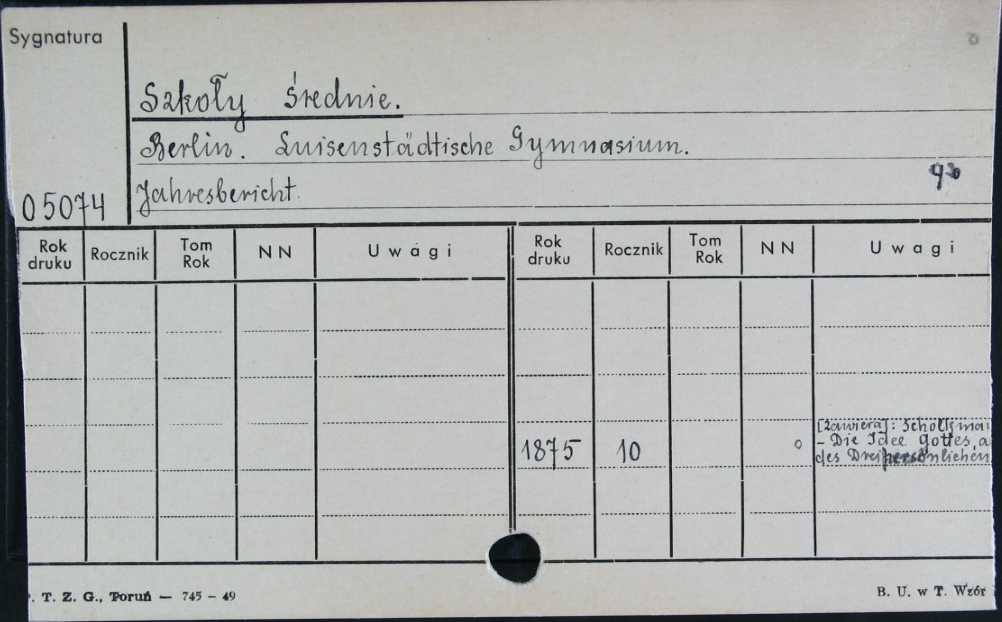 Sygnatura
Szkoły średnie.
Berlin. Luisenstädtische Gymnasium.
Jahresbericht.
05074
Rok druku Rocznik Tom Rok NN Uwagi Rok druku Rocznik Tom Rok NN Uwagi
[Zawiera]:
1875 10 o – Die Idee Gottes, a
des Dreipersönlichen
. T. Z. G., Toruń — 745 – 49 B. U. w T. Wzór